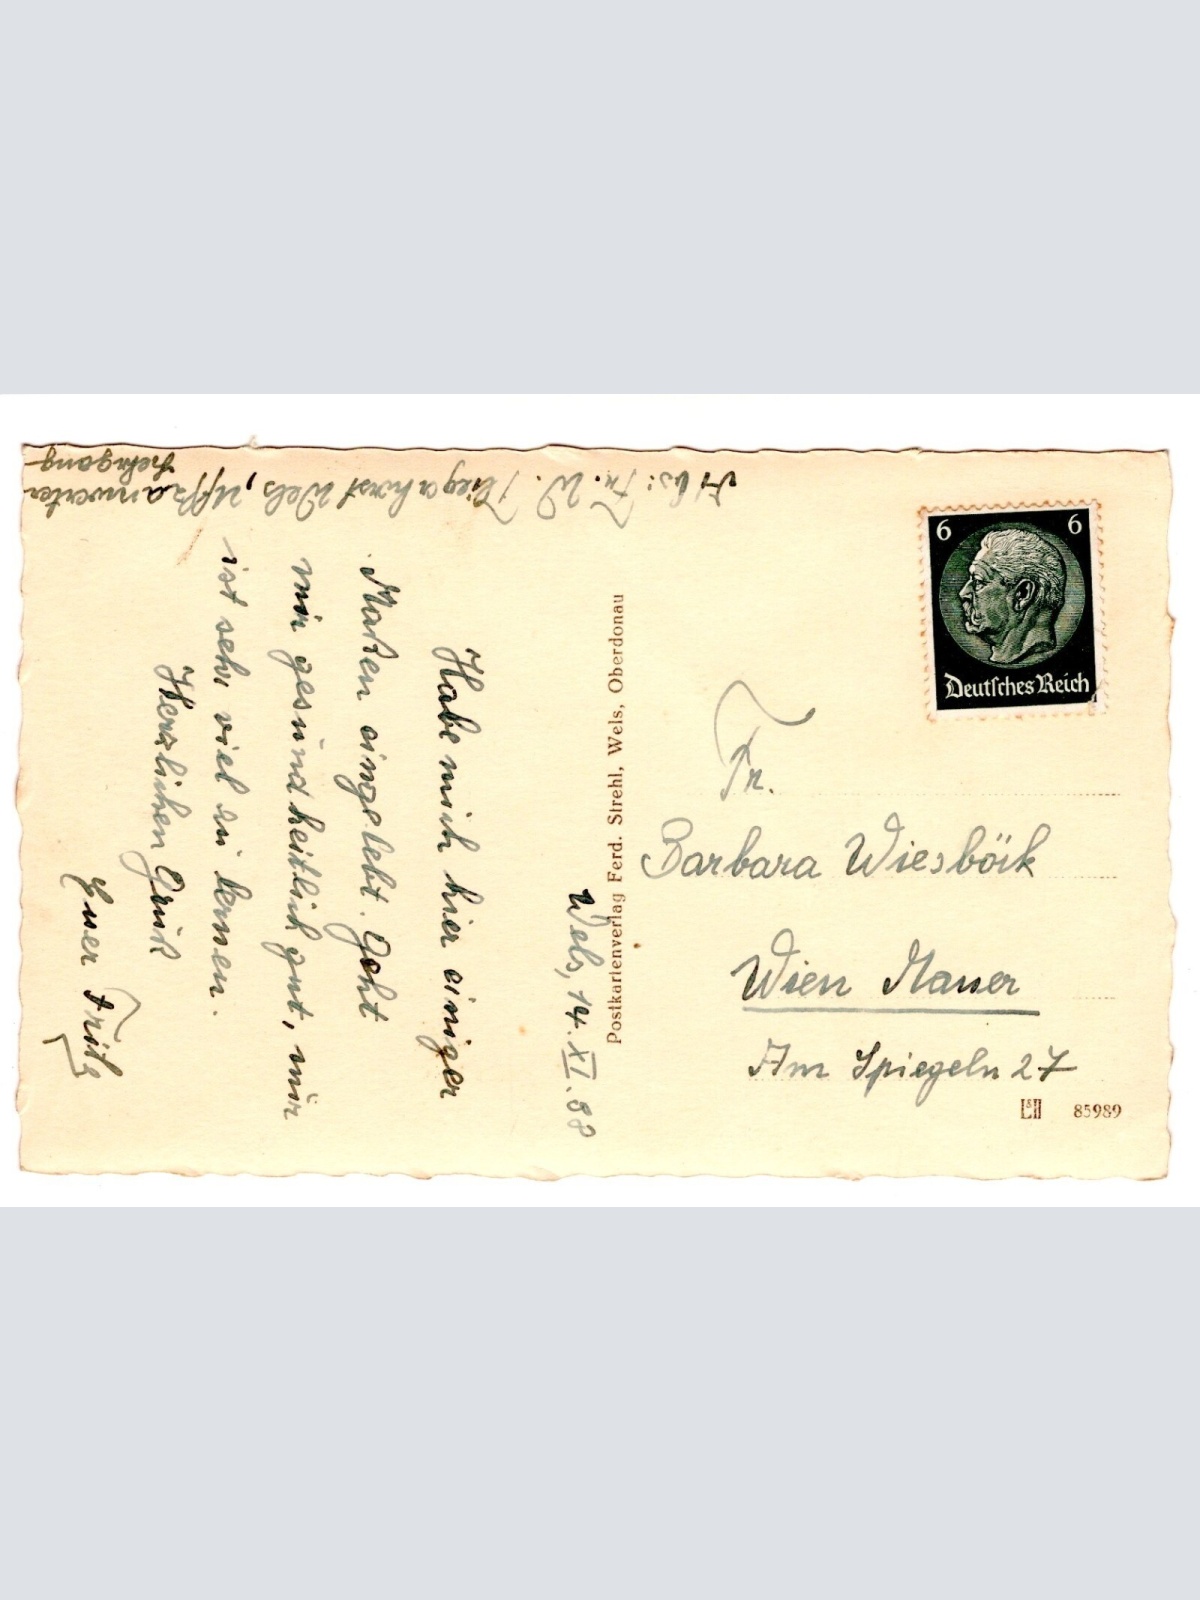 Abs: Fr. W. Fliegerhorst Wels, Uffzanwerter
Lehrgang
Wels, 14. XI. 38
Habe mich hier einiger
Maßen eingelebt. Geht
mir gesundheitlich gut, nur
ist sehr viel zu lernen.
Herzlichen Gruß
Euer Fritz
Postkartenverlag Ferd. Strehl, Wels, Oberdonau
6 6
Deutsches Reich
Fr.
Barbara Wiesböck
Wien Mauer
Am Spiegeln 27
85989